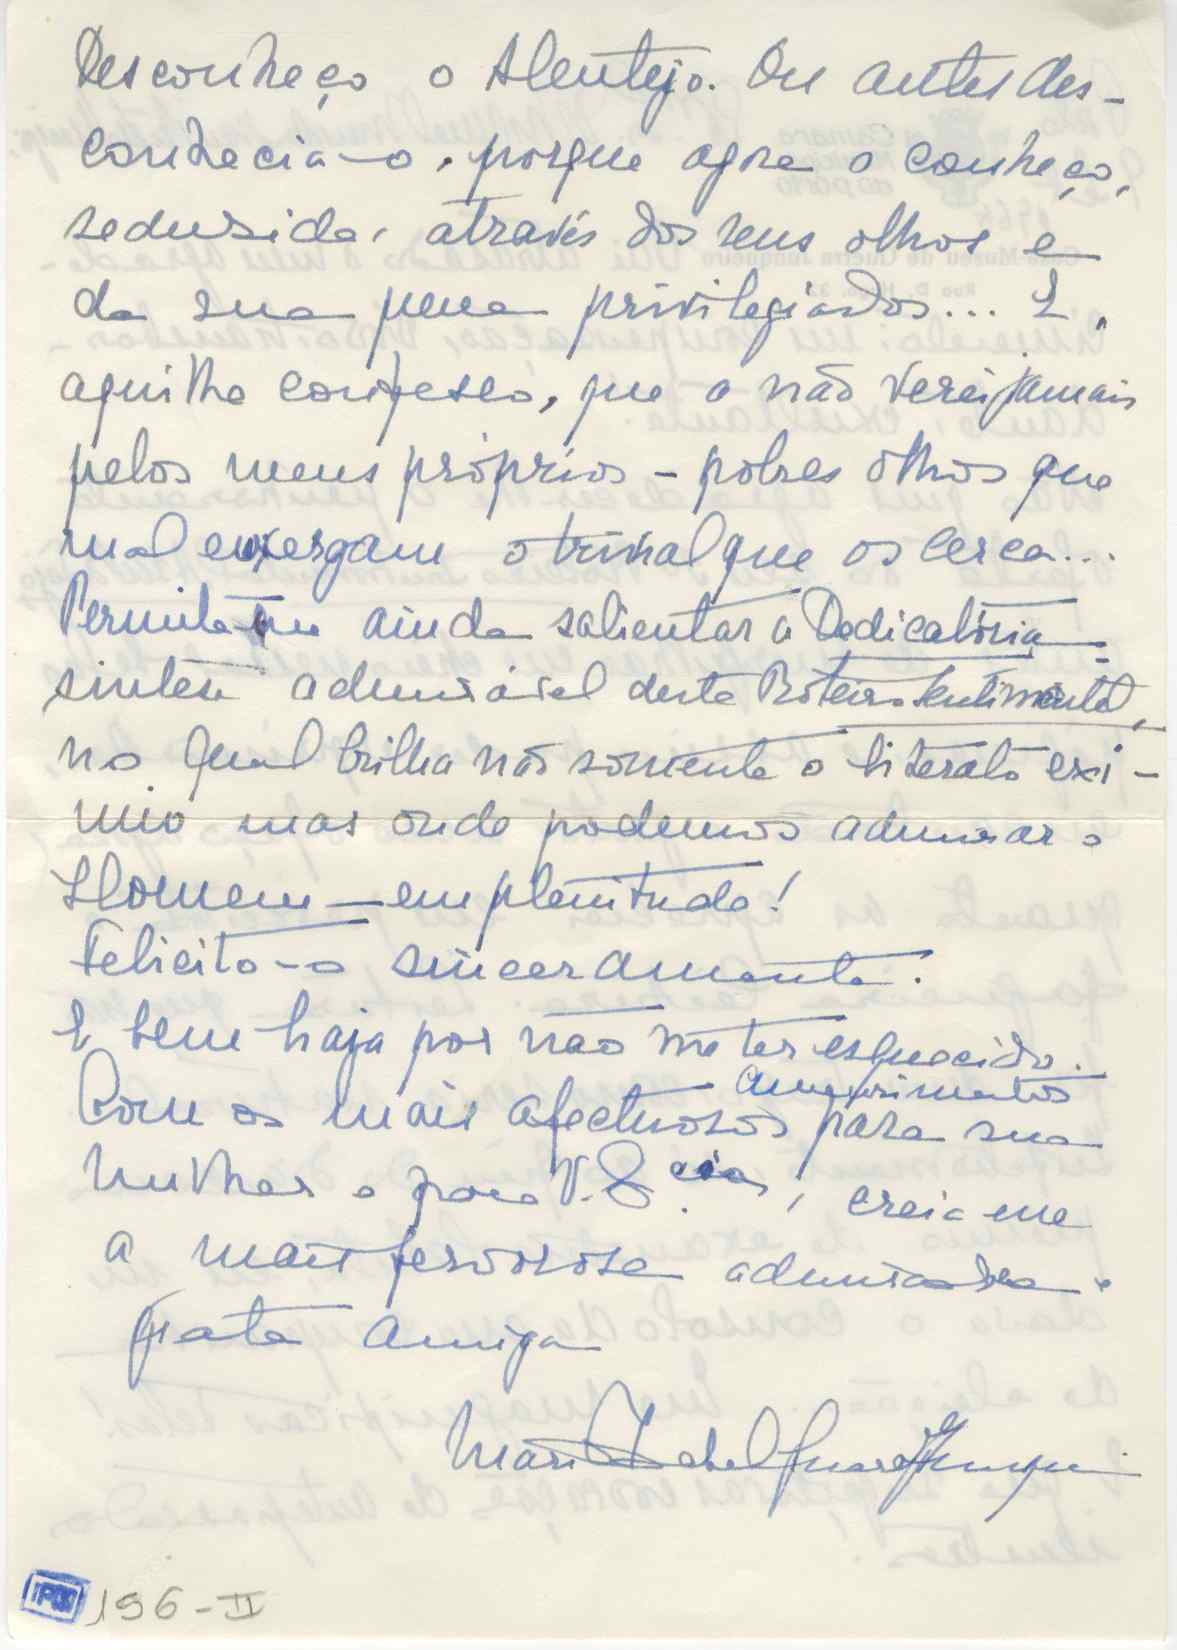 Desconheço o Alentejo. Ou antes des-
conhecia-o, porque agora o conheço,
seduzida, através dos seus olhos e
da sua pena privilegiados... E,
aqui lho confesso, que o não verei jamais
pelos meus próprios - pobres olhos que
mal enxergam o trivial que os cerca...
Permita-me ainda salientar a Dedicatória -
síntese admirável deste Roteiro Sentimental,
no qual brilha não somente o literato exí-
mio mas onde podemos admirar o
Homem - em plenitude!
Felicito-o sinceramente.
E bem haja por não me ter esquecido.
cumprimentos
Com os mais afectuosos para sua
Mulher e para V. Ex.cias, creia-me
a mais fervorosa admiradora e
grata amiga
Maria Isabel Guerra Junqueiro
196-II